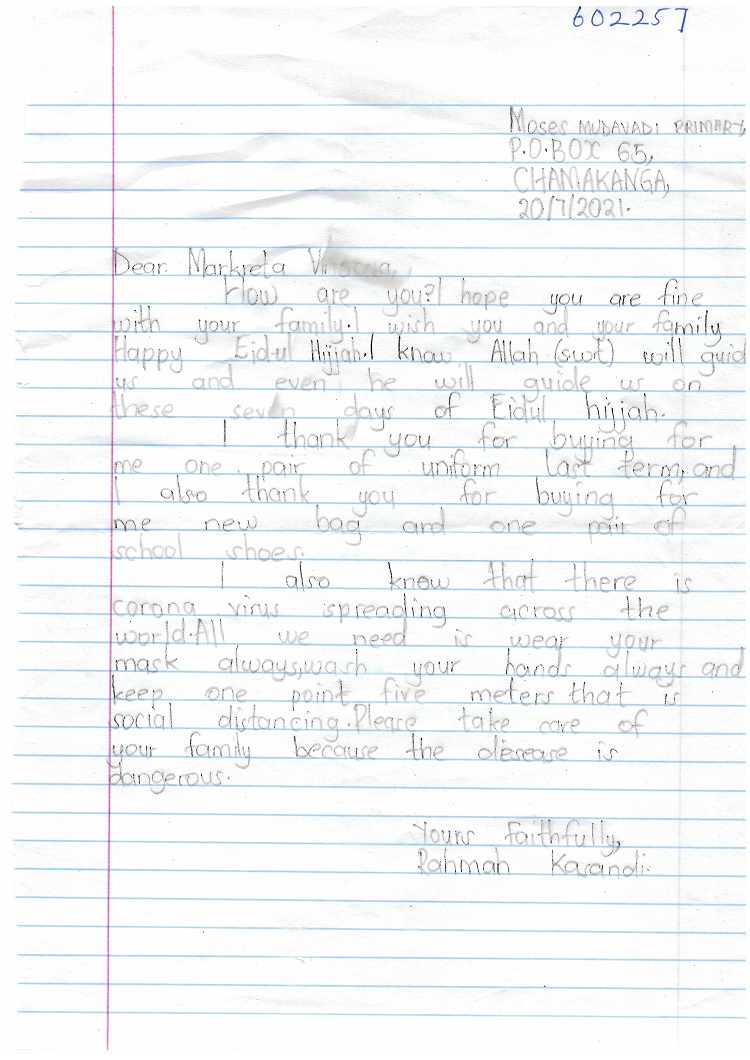 602257
Moses MUDAVADI PRIMARY,
P.O.BOX 65,
CHAMAKANGA,
20/7/2021.
Dear Markreta
How are you? I hope you are fine
with your family. I wish you and your family
Happy Eid-ul Hijjah. I know Allah (swt) will guid
us and even he will guide us on
these seven days of Eidul hijjah.
I thank you for buying for
me one pair of uniform last term, and
I also thank you for buying for
me new bag and one pair of
school shoes.
I also know that there is
corona virus spreading across the
world. All we need is wear your
mask always, wash your hands always and
keep one point five meters that is
social distancing. Please take care of
your family because the disesease is
dangerous.
Yours Faithfully,
Rahmah Kasandi.